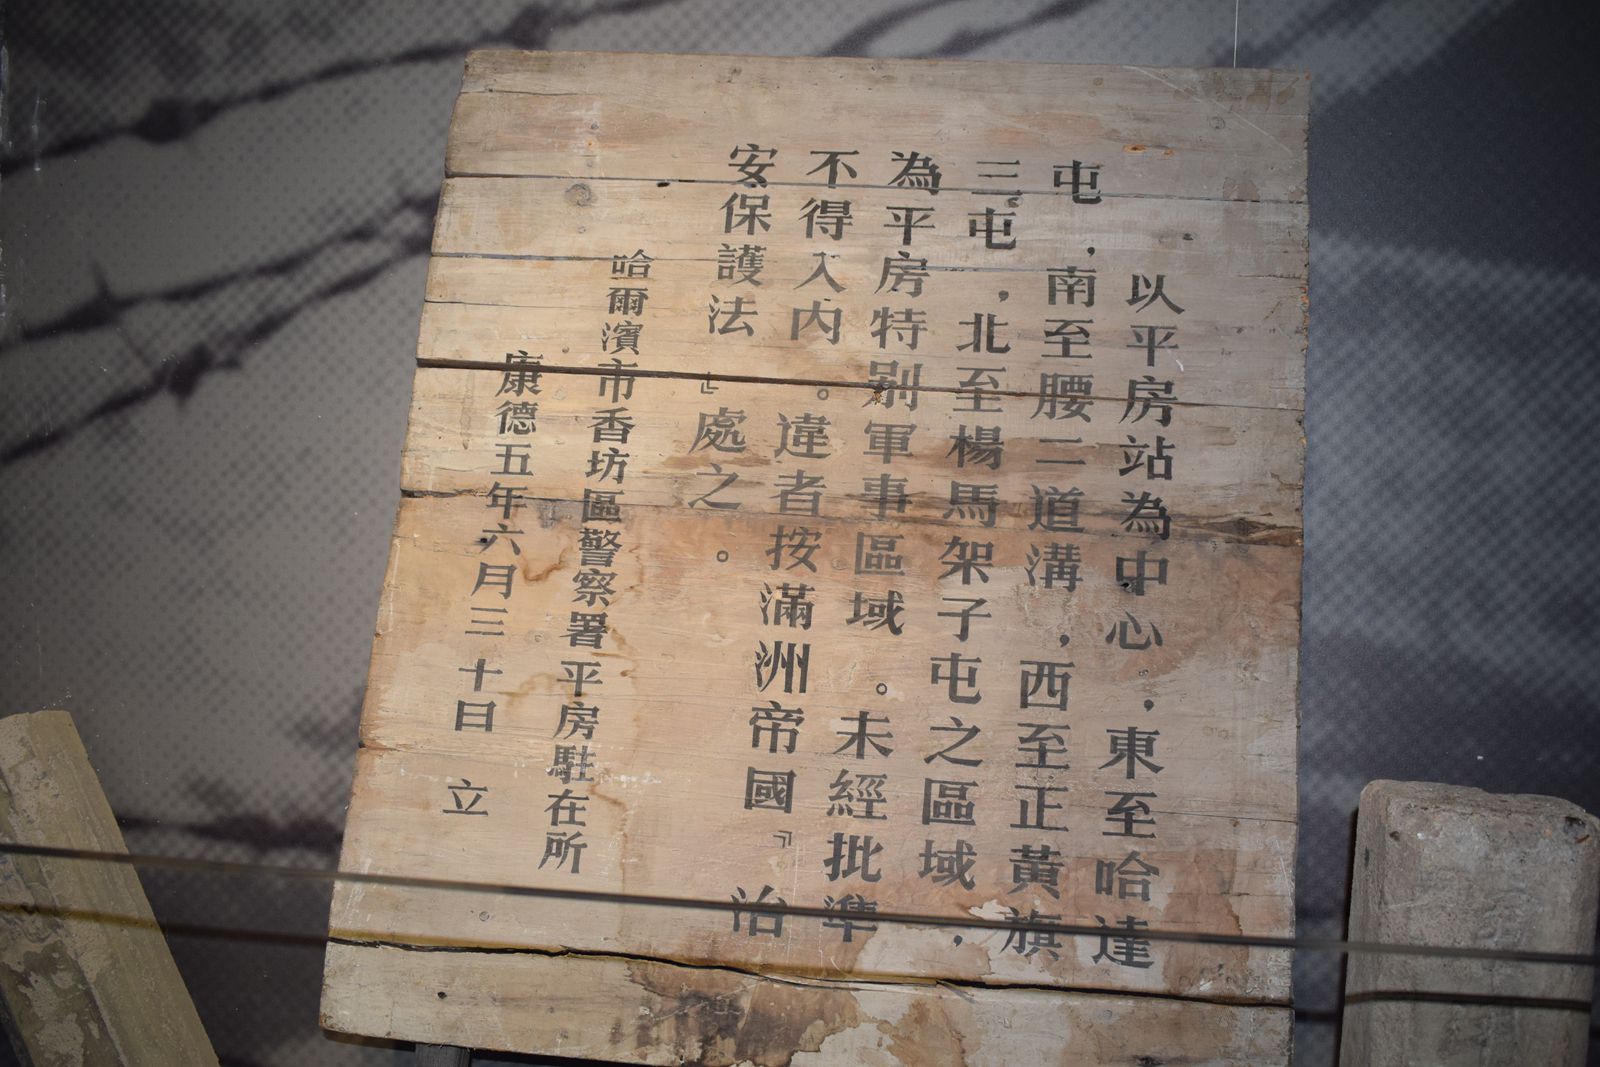 以平房站為中心，東至哈達
屯，南至腰二道溝，西至正黃旗
三屯，北至楊馬架子屯之區域，
為平房特別軍事區域。未經批準
不得入內。違者按滿洲帝國『治
安保護法』處之。
哈爾濱市香坊區警察署平房駐在所
康德五年六月三十日 立